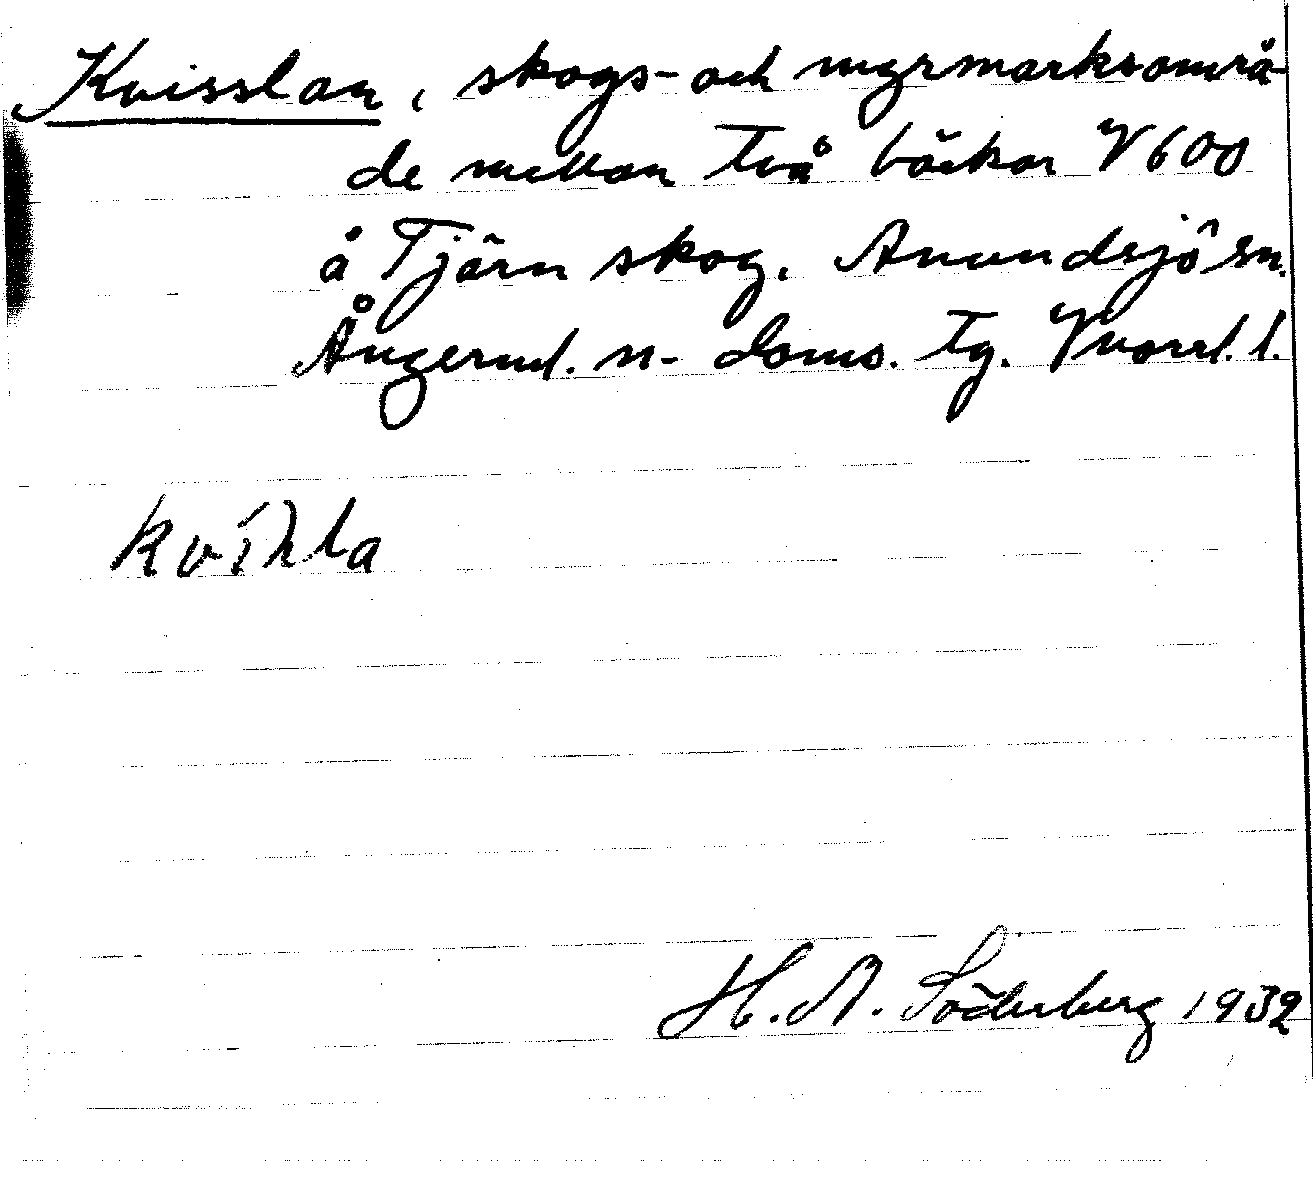 Kvisslan, skogs- och myrmarksområ-
de mellan två bäckar V 600
å Tjärn skog. Anundsjö sn.
Ångerml. n. doms. tg. Vnorrl. l.
H. A. Söderberg 1932